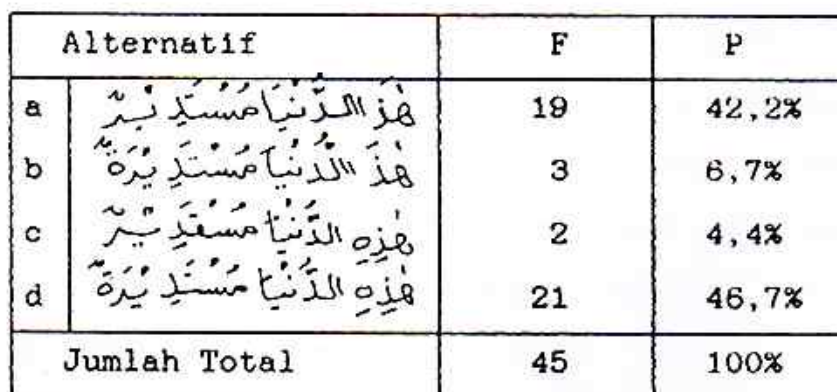 Alternatif F P
a هٰذَا الدُّنْيَا مُسْتَدِيْرٌ 19 42,2%
b هٰذَا الدُّنْيَا مُسْتَدِيْرَةٌ 3 6,7%
c هٰذِهِ الدُّنْيَا مُسْتَدِيْرٌ 2 4,4%
d هٰذِهِ الدُّنْيَا مُسْتَدِيْرَةٌ 21 46,7%
Jumlah Total 45 100%